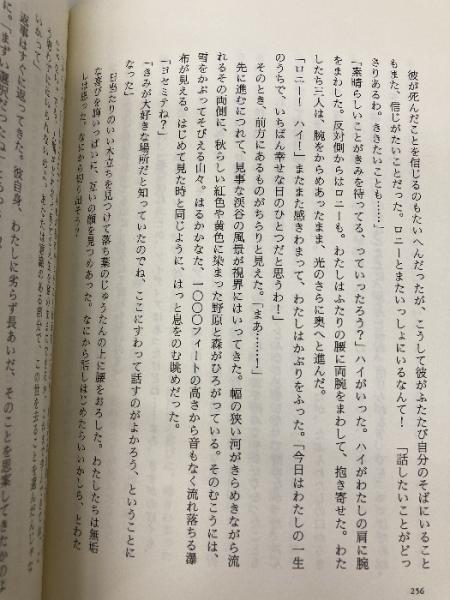 彼が死んだことを信じるのもたいへんだったが、こうして彼がふたたび自分のそばにいること
もまた、信じがたいことだった。ロニーとまたいっしょにいるなんて！　「話したいことがどっ
さりあるわ。ききたいことも……」
「素晴らしいことがきみを待ってる、っていったろう？」ハイがいった。ハイがわたしの肩に腕
をまわした。反対側からはロニーも。わたしはふたりの腰に両腕をまわして、抱き寄せた。わた
したち三人は、腕をからめあったまま、光のさらに奥へと進んだ。
「ロニー！　ハイ！」またまた感きわまって、わたしはかぶりをふった。「今日はわたしの一生
のうちで、いちばん幸せな日のひとつだと思うわ！」
そのとき、前方にあるものがちらりと見えた。「まあ……！」
先に進むにつれて、見事な渓谷の風景が視界にはいってきた。幅の狭い河がきらめきながら流
れるその両側に、秋らしい紅色や黄色に染まった野原と森がひろがっている。そのむこうには、
雪をかぶってそびえる山々。はるかかなた、一〇〇〇フィートの高さから音もなく流れ落ちる瀑
布が見える。はじめて見た時と同じように、はっと息をのむ眺めだった。
「ヨセミテね？」
「きみが大好きな場所だと知っていたのでね、ここにすわって話すのがよかろう、ということに
なった」
日当たりのいい木立ちを見つけて落ち葉のじゅうたんの上に腰をおろした。わたしたちは無垢
な喜びを胸いっぱいに、互いの顔を見つめあった。なにから話しはじめたらいいかしら、とわた
しは思った。なにから切り出そう？
いかって」
返事はすぐ返ってきた。彼自身、わたしに劣らず長あいだ、そのことを思案してきたかのよ
256